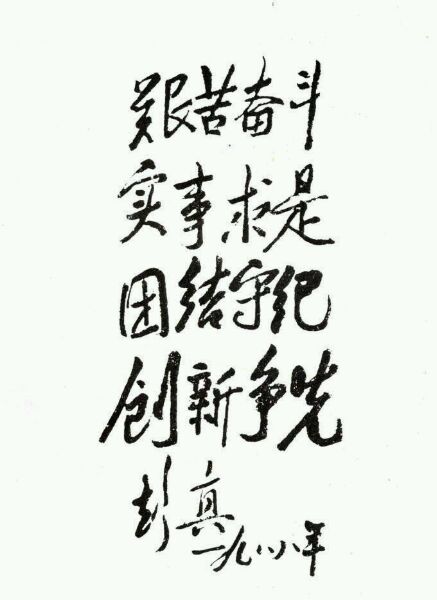 艰苦奋斗
实事求是
团结守纪
创新争先
彭真
一九八八年